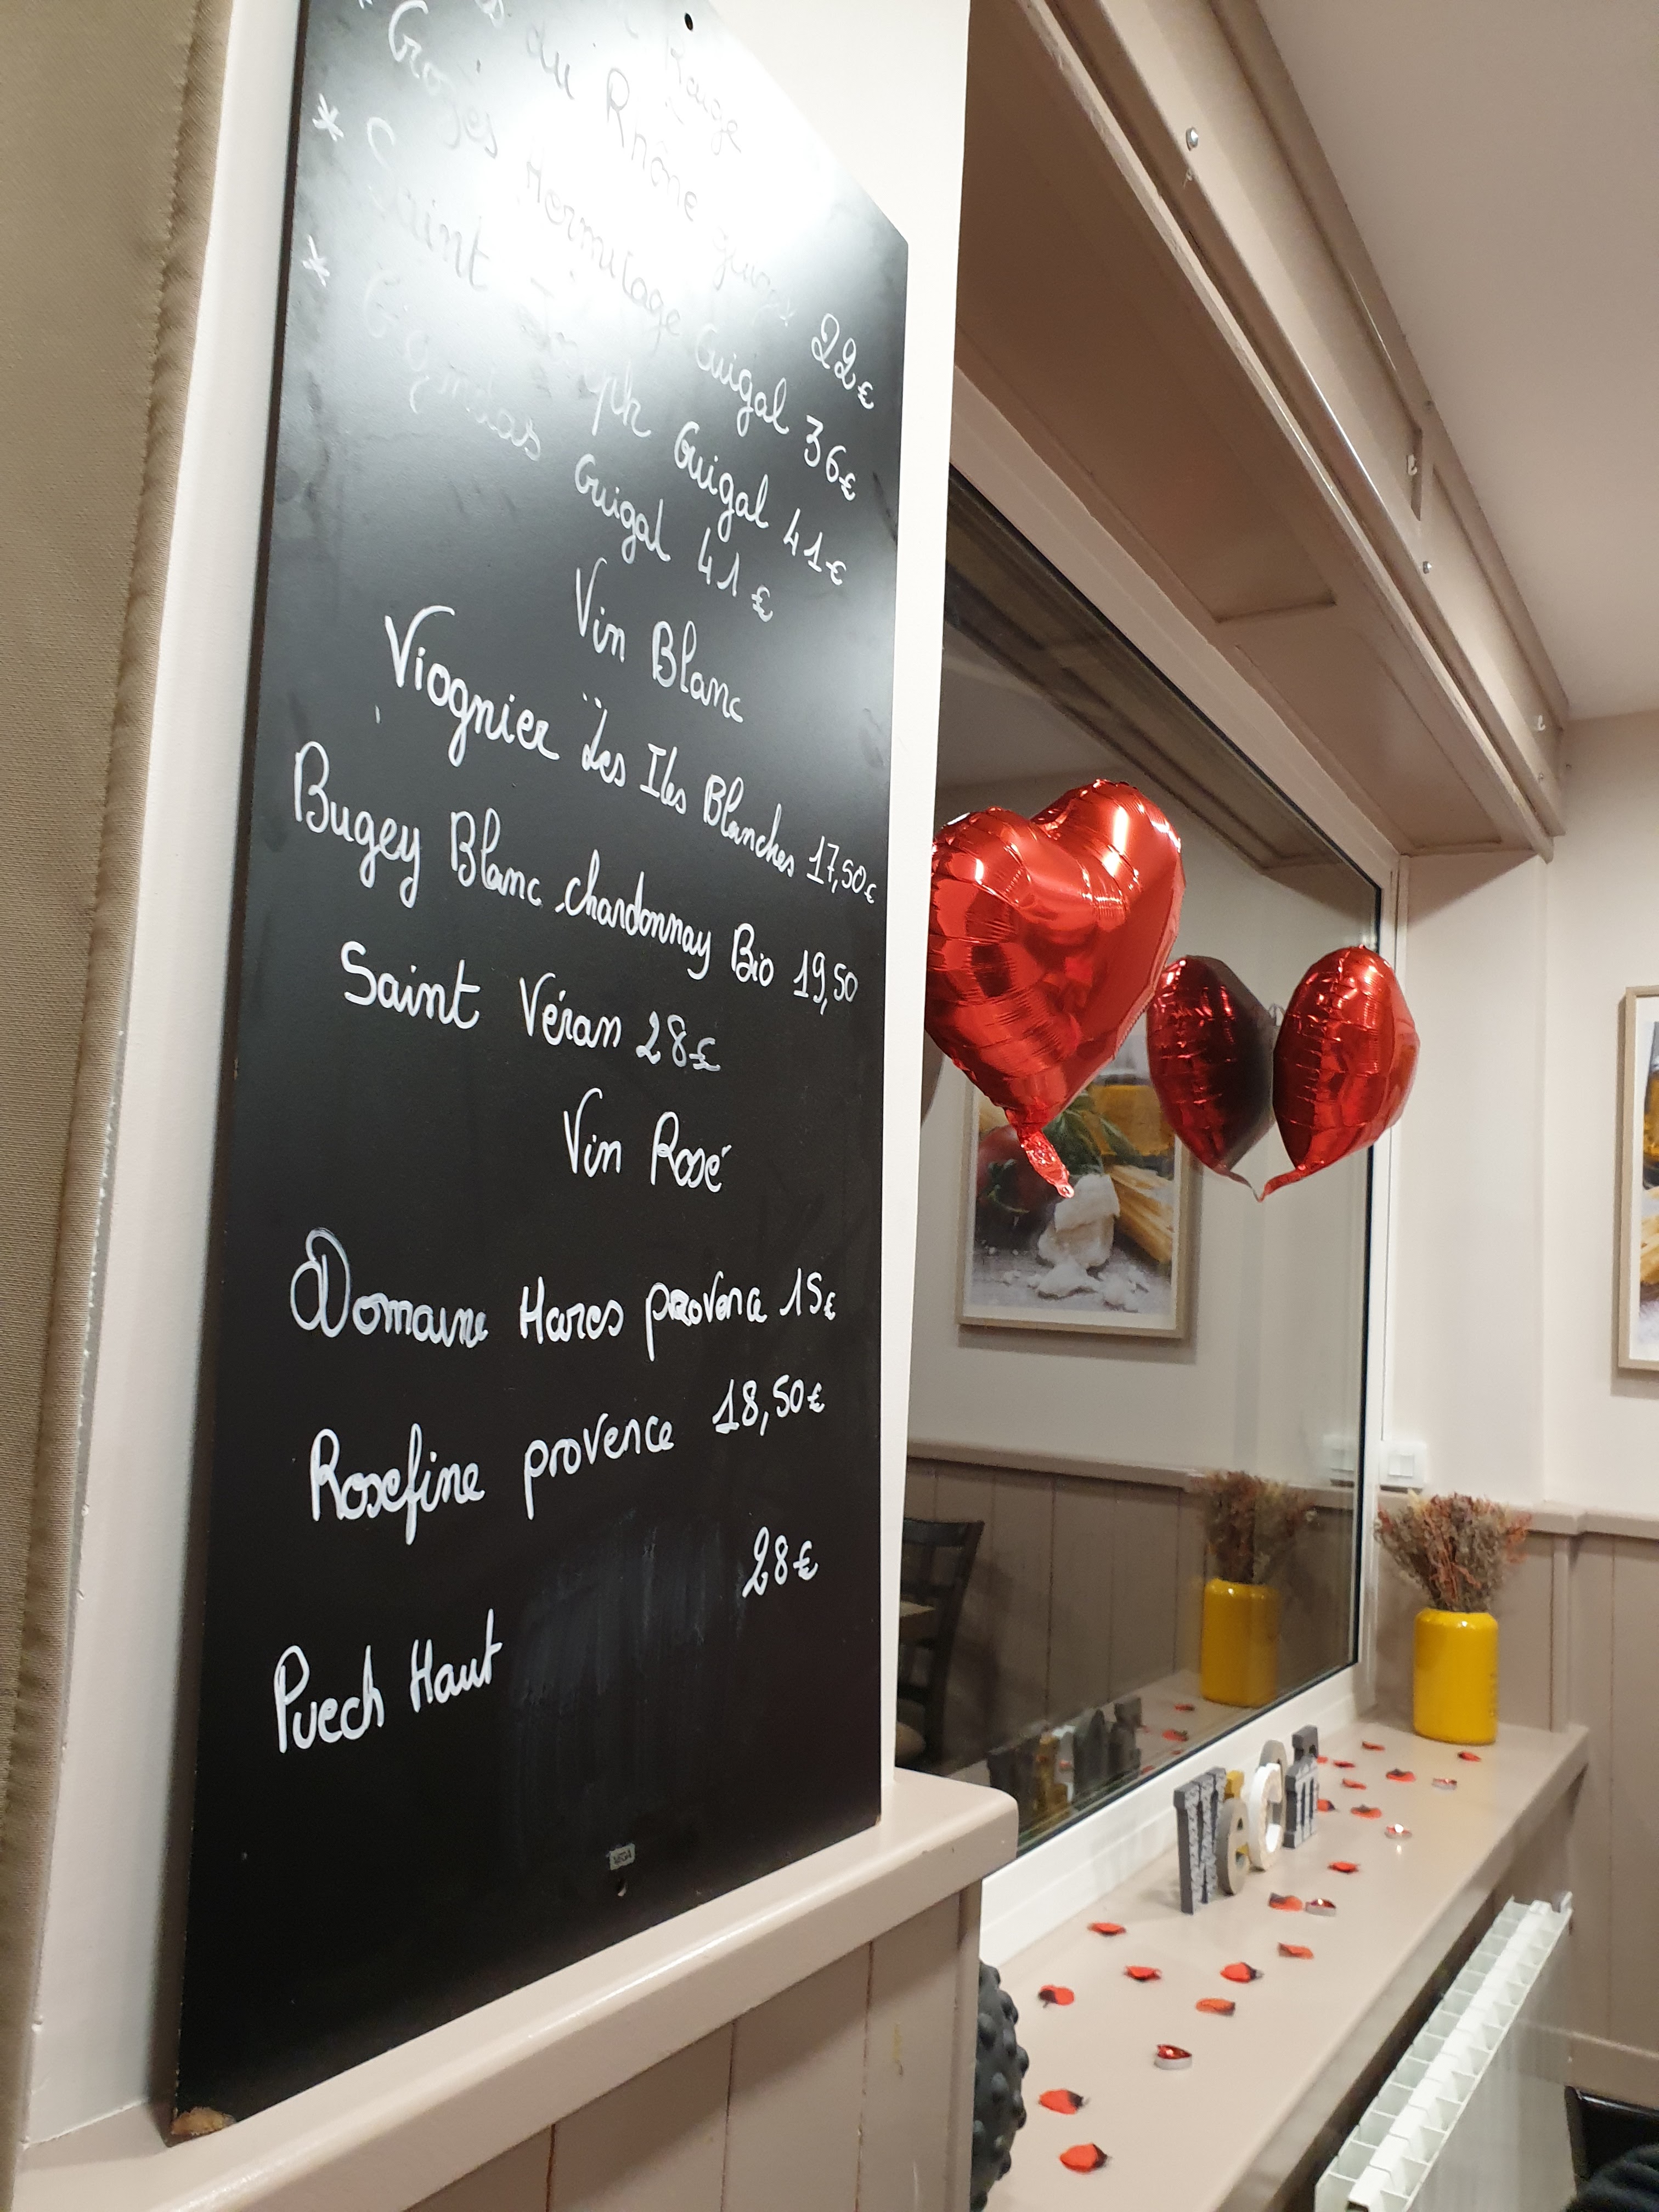 Rouge
du Rhône 22€
* Crozes Hermitage Guigal 36€
* Saint Joseph Guigal 41€
* Gigondas Guigal 41€
Vin Blanc
Viognier Les Iles Blanches 17,50€
Bugey Blanc chardonnay Bio 19,50
Saint Véran 28€
Vin Rosé
Domaine Hares provence 15€
Rosefine provence 18,50€
Puech Haut 28€
VEGA